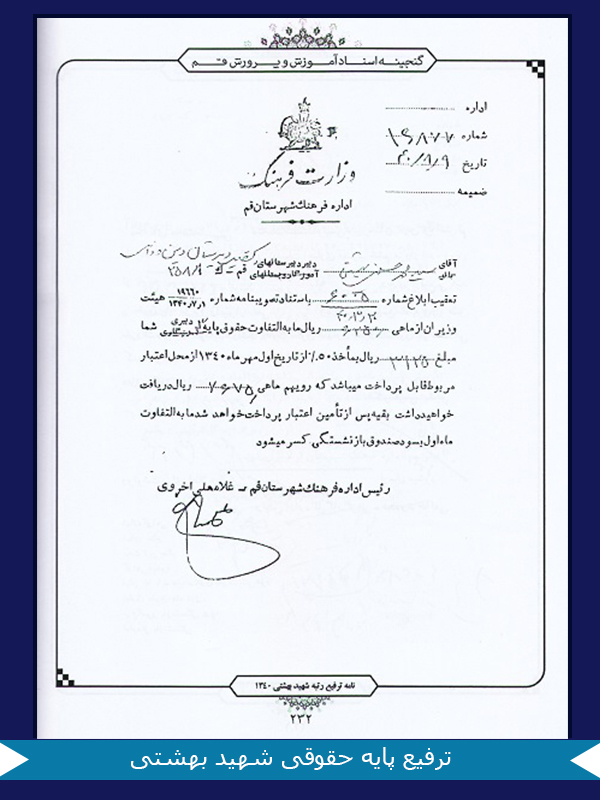 گنجینه اسناد آموزش و پرورش قم
اداره
شماره ۱۶۸۷۷
تاریخ ۴۰/۸/۹
ضمیمه
وزارت فرهنگ
اداره فرهنگ شهرستان قم
آقای سید محمد حسینی بهشتی دبیر دبیرستانهای
قم
تعقیب ابلاغ شماره ۶۰۳۵ باستناد تصویبنامه شماره ۱۹۶۶۰ ۱۳۴۰٫۷٫۱ هیئت
وزیران از ماهی ۶۲۵۰ ریال ما به التفاوت حقوق پایه ۲ دبیری شما
مبلغ ۳۱۲۵ ریال بمأخذ ۵۰٪ از تاریخ اول مهر ماه ۱۳۴۰ از محل اعتبار
مربوط قابل پرداخت میباشد که رویهم ماهی ریال دریافت
خواهید داشت بقیه پس از تأمین اعتبار پرداخت خواهد شد ما به التفاوت
ماه اول بسود صندوق بازنشستگی کسر میشود
رئیس اداره فرهنگ شهرستان قم ـ غلامعلی اخروی
نامه ترفیع رتبه شهید بهشتی ۱۳۴۰
۲۳۲
ترفیع پایه حقوقی شهید بهشتی